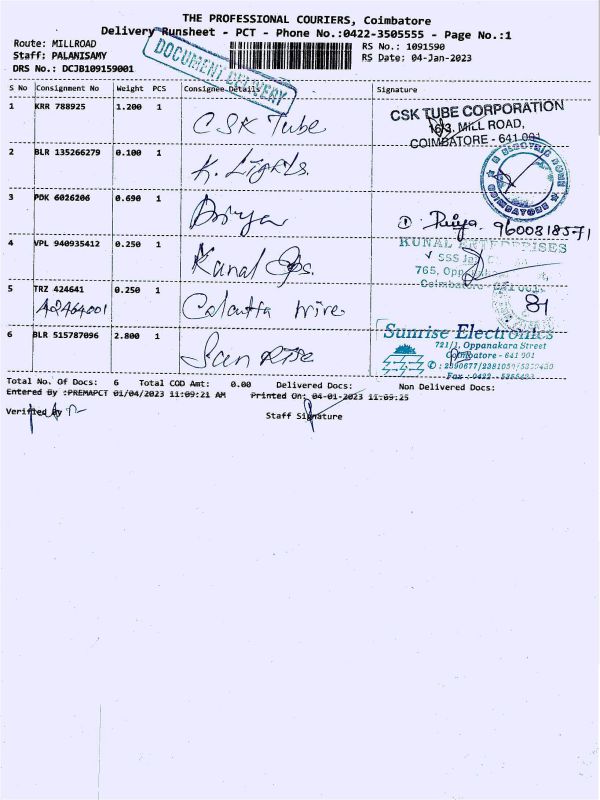 THE PROFESSIONAL COURIERS, Coimbatore
Delivery Runsheet - PCT - Phone No.:0422-3505555 - Page No.:1
Route: MILLROAD
RS No.: 1091590
Staff: PALANISAMY
RS Date: 04-Jan-2023
DRS No.: DCJB109159001
DOCUMENT DELIVERY
S No Consignment No Weight PCS Consignee Details Signature
1 KRR 788925 1.200 1 CSK Tube
CSK TUBE CORPORATION
16/3, MILL ROAD,
COIMBATORE - 641 001
2 BLR 135266279 0.100 1 K. Lights.
COIMBATORE
3 PDK 6026206 0.690 1 Priya
① Priya. 9600818571
4 VPL 940935412 0.250 1 Kunal
KUNAL ENTERPRISES
765,
Coimbatore
5 TRZ 424641 0.250 1 Calcutta wire
A2464001
6 BLR 515787096 2.800 1 Sun Rise
Sunrise Electronics
721/1, Oppanakara Street
Coimbatore - 641 001
Total No. Of Docs: 6 Total COD Amt: 0.00 Delivered Docs: Non Delivered Docs:
Entered By :PREMAPCT 01/04/2023 11:09:21 AM Printed On: 04-01-2023 11:09:25
Verified By
Staff Signature